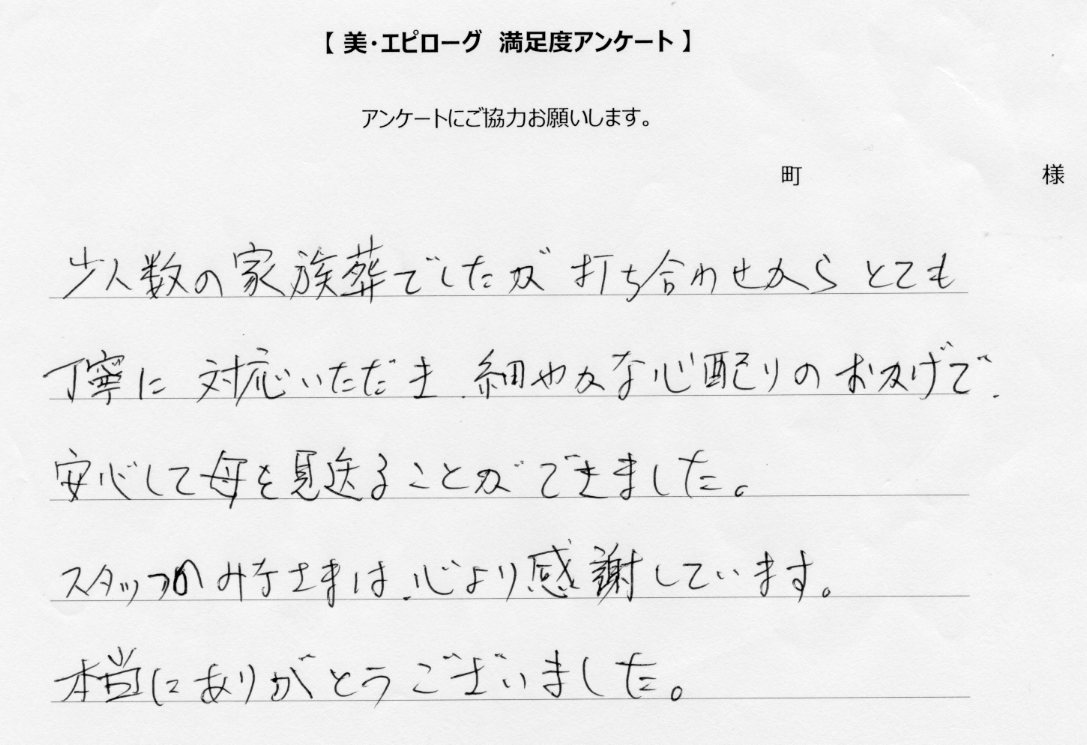 【 美・エピローグ 満足度アンケート 】
アンケートにご協力お願いします。
町 様
少人数の家族葬でしたが 打ち合わせからとても
丁寧に 対応いただき、細やかな心配りのおかげで、
安心して母を見送ることができました。
スタッフのみなさまは、心より感謝しています。
本当にありがとうございました。